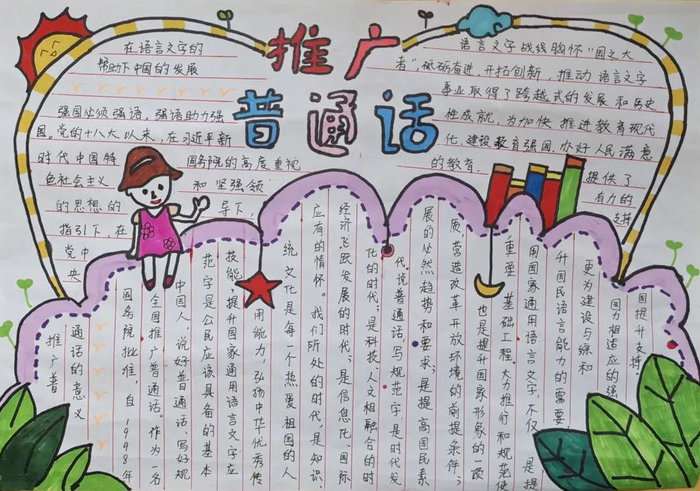 推广
普通话
在语言文字的
帮助下中国的发展
强国必须强语，强语助力强
国。党的十八大以来，在习近平新
时代中国特 国务院的高度重视
色社会主义 和坚强领
的思想的 导下，
指引下，在
党中
央
语言文字战线胸怀“国之大
者”，砥砺奋进，开拓创新，推动语言文字
事业取得了跨越式的发展和历史
性成就，为加快推进教育现代
化、建设教育强国，办好人民满意
的教育， 提供了
有力的
支持
推广普
通话的意义
国务院批准，自1998年
全国推广普通话。作为一名
中国人，说好普通话，写好规
范字是公民应该具备的基本
技能；提升国家通用语言文字应
用能力，弘扬中华优秀传
统文化是每一个热爱祖国的人
应有的情怀。我们所处的时代，是知识、
经济飞跃发展的时代；是信息化、国际
化的时代；是科技、人文相融合的时
代。说普通话写规范字是时代发
展的必然趋势和要求；是提高国民素
质、营造改革开放环境的前提条件；
也是提升国家形象的一项
重要基础工程。大力推行和规范使
用国家通用语言文字，不仅是提
升国民语言能力的需要，
更为建设与综和
国力相适应的强
国提升支持。